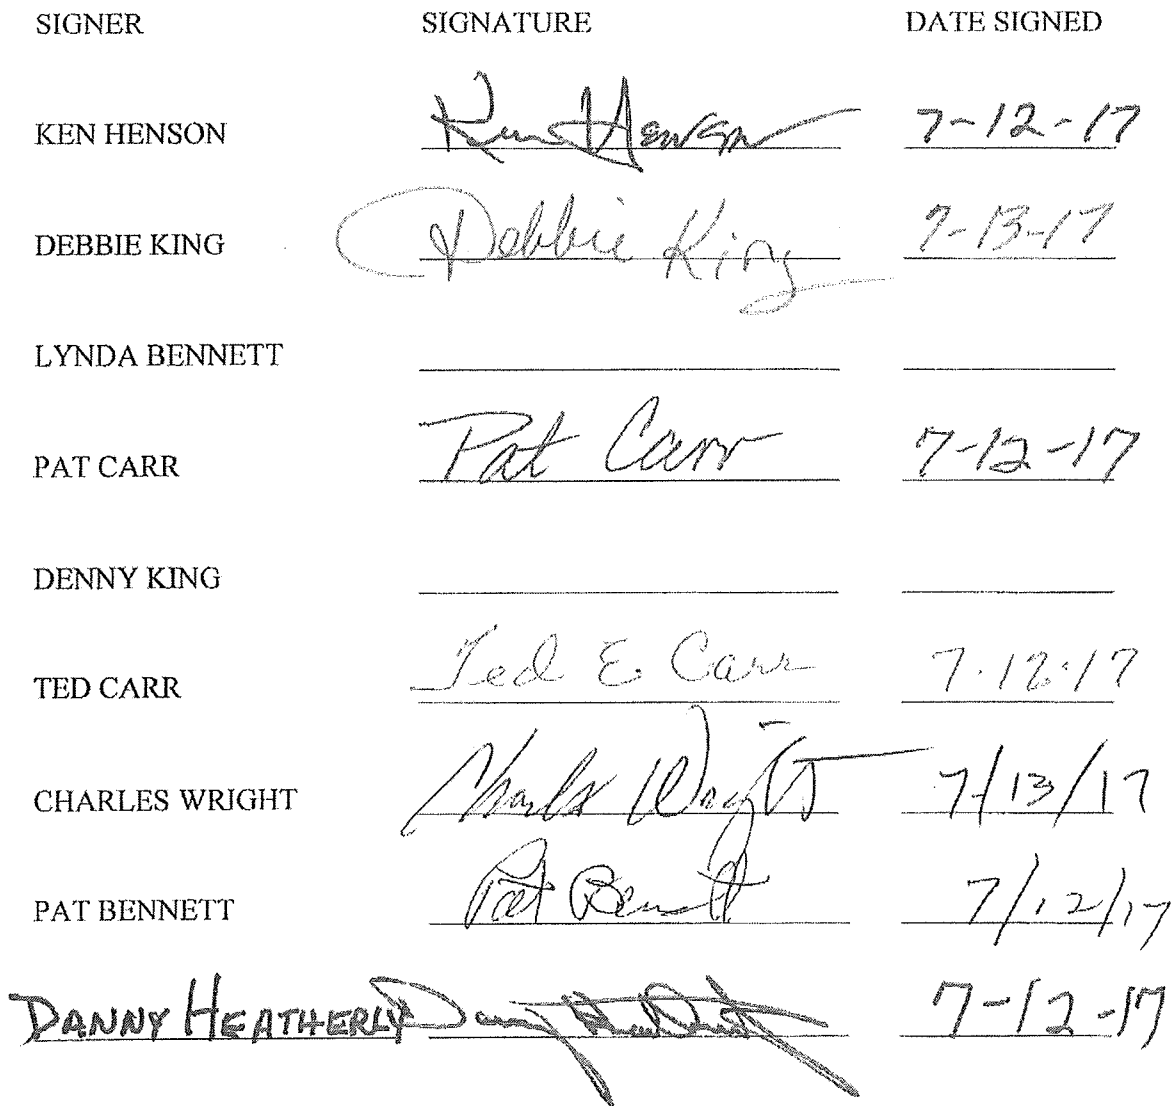 SIGNER SIGNATURE DATE SIGNED
KEN HENSON Ken Henson 7-12-17
DEBBIE KING Debbie King 7-13-17
LYNDA BENNETT
PAT CARR Pat Carr 7-12-17
DENNY KING
TED CARR Ted E. Carr 7.12.17
CHARLES WRIGHT Charles Wright 7/13/17
PAT BENNETT Pat Bennett 7/12/17
DANNY HEATHERLY Danny 7-12-17